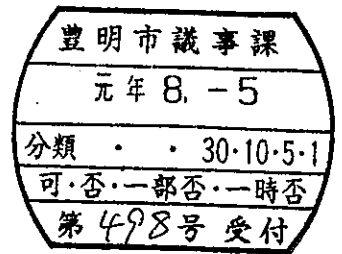 豊明市議事課
元年 8. -5
分類 ・ ・ 30・10・5・1
可・否・一部否・一時否
第498号 受付